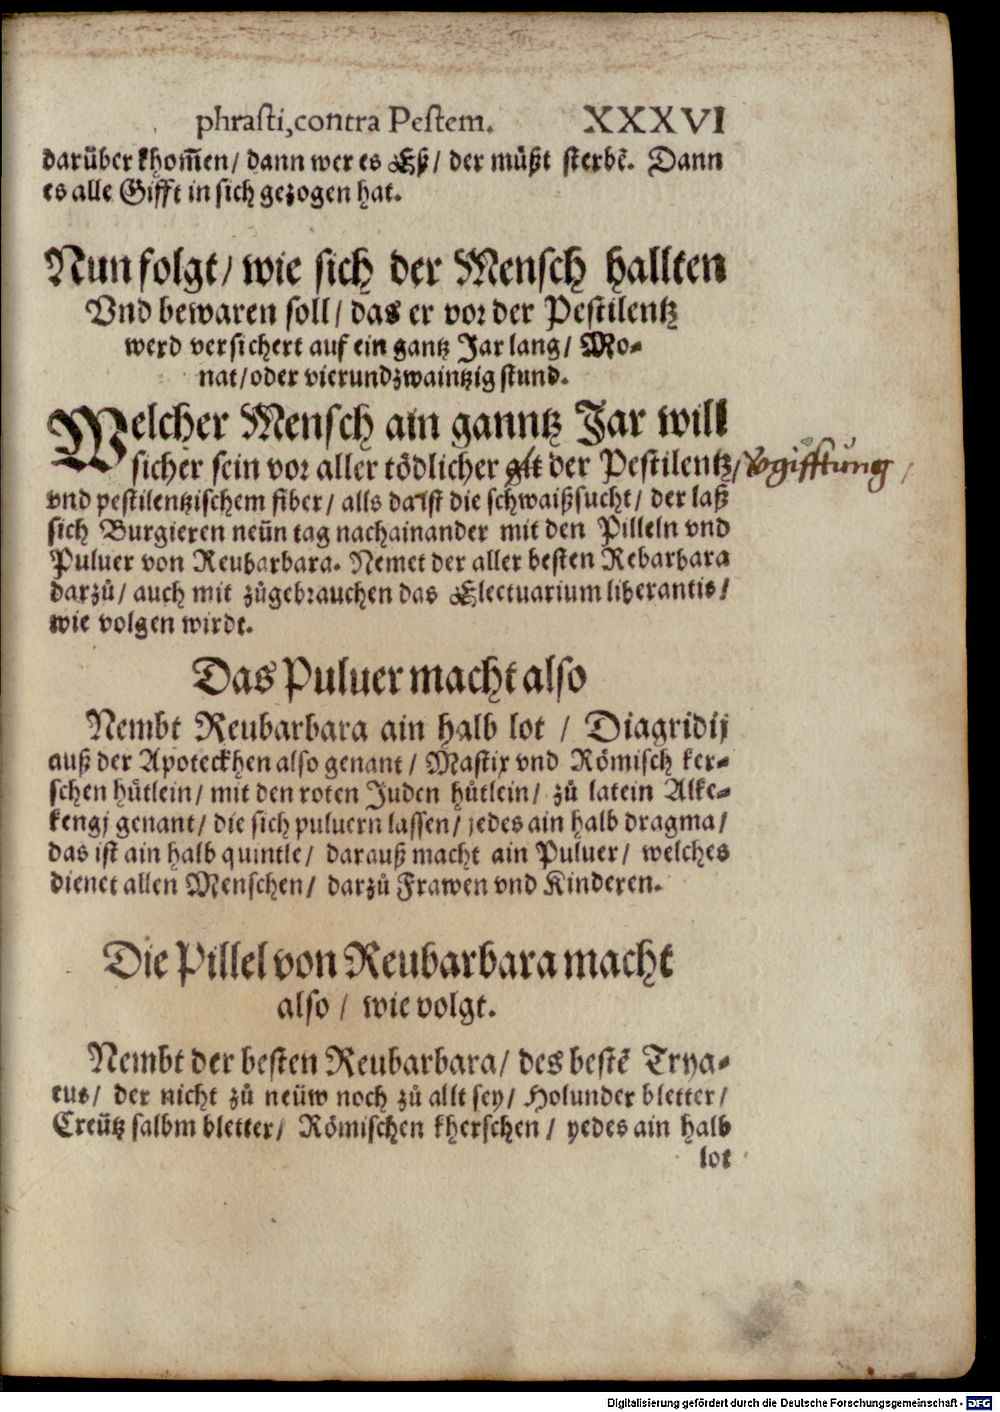 phrasti, contra Pestem. XXXVI
darüber khom̃en / dann wer es Eß / der müßt sterbẽ. Dann
es alle Gifft in sich gezogen hat.
Nun folgt / wie sich der Mensch hallten
Vnd bewaren soll / das er vor der Pestilentz
werd versichert auf ein gantz Jar lang / Mo-
nat / oder vierundzwaintzig stund.
Welcher Mensch ain ganntz Jar will
sicher sein vor aller tödlicher git der Pestilentz / Vgifftung
vnd pestilentzischem fiber / alls da ist die schwaißsucht / der laß
sich Burgieren neün tag nachainander mit den Pilleln vnd
Puluer von Reubarbara. Nemet der aller besten Rebarbara
darzů / auch mit zůgebrauchen das Electuarium liberantis /
wie volgen wirdt.
Das Puluer macht also
Nembt Reubarbara ain halb lot / Diagridij
auß der Apoteckhen also genant / Mastix vnd Römisch ker-
schen hütlein / mit den roten Juden hütlein / zů latein Alke-
kengj genant / die sich puluern lassen / jedes ain halb dragma /
das ist ain halb quintle / darauß macht ain Puluer / welches
dienet allen Menschen / darzů Frawen vnd Kinderen.
Die Pillel von Reubarbara macht
also / wie volgt.
Nembt der besten Reubarbara / des bestẽ Trya-
cus / der nicht zů neüw noch zů allt sey / Holunder bletter /
Creütz salbm bletter / Römischen kherschen / yedes ain halb
lot
Digitalisierung gefördert durch die Deutsche Forschungsgemeinschaft - DFG